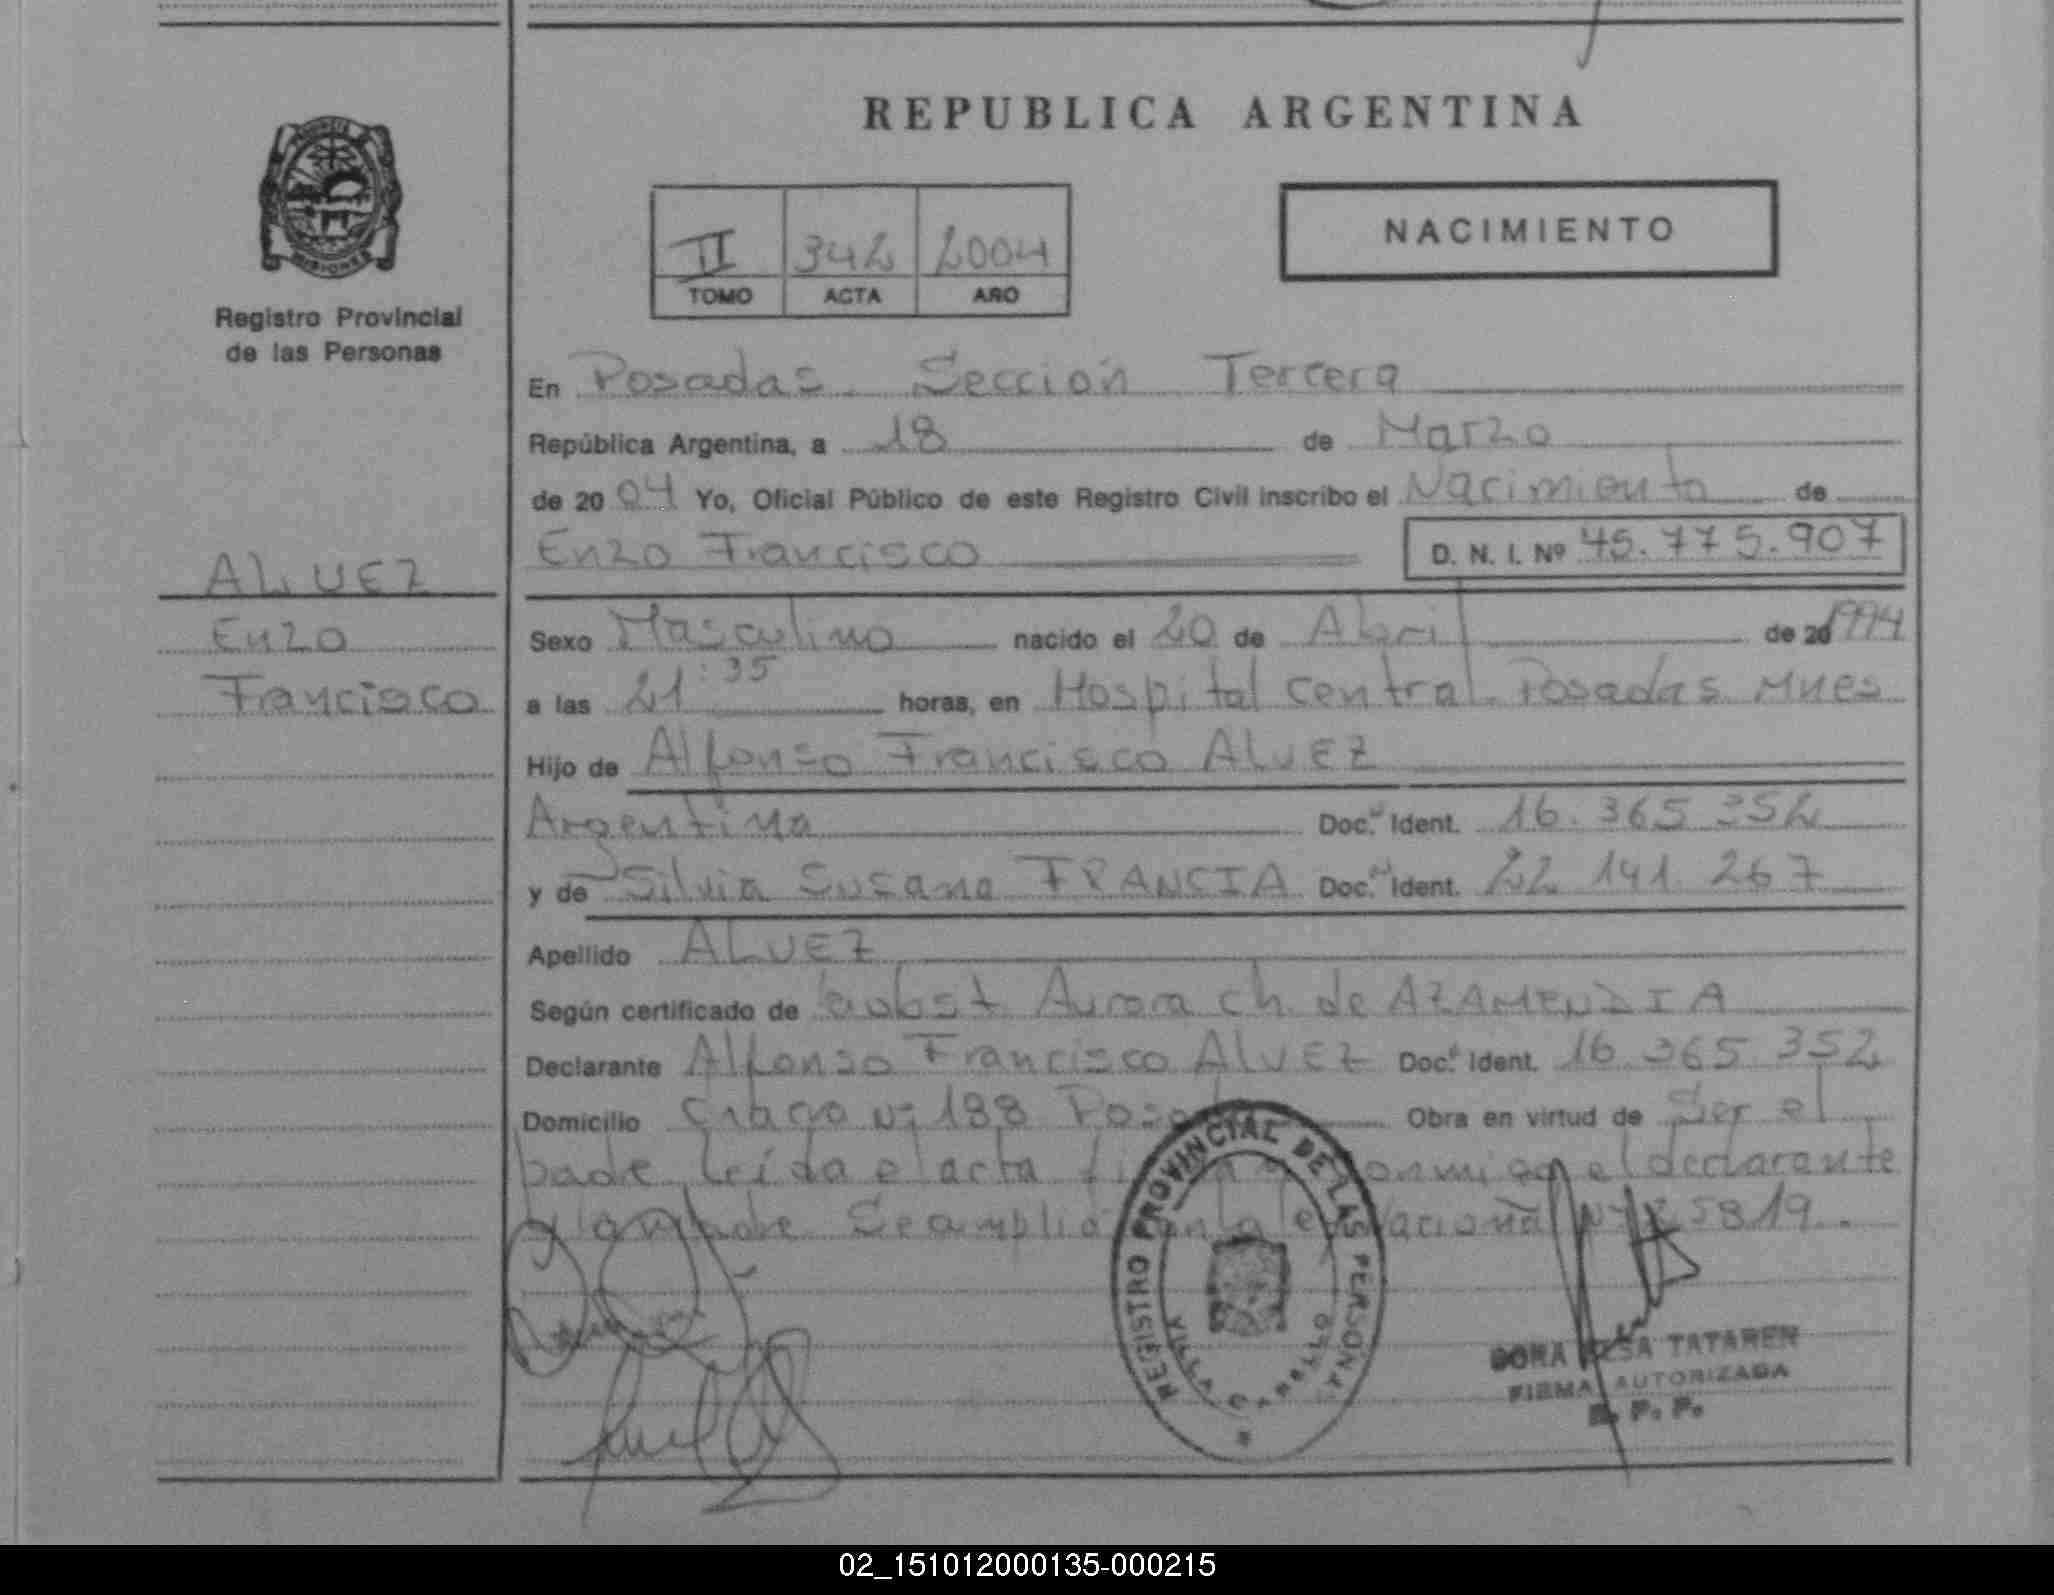 REPUBLICA ARGENTINA
NACIMIENTO
II 342 2004
TOMO ACTA AÑO
MISIONES
Registro Provincial
de las Personas
ALVEZ
Enzo
Francisco
En Posadas Sección Tercera
República Argentina, a 18 de Marzo
de 2004 Yo, Oficial Público de este Registro Civil inscribo el Nacimiento de
Enzo Francisco D. N. I. Nº 45.775.907
Sexo Masculino nacido el 20 de Abril de 20 1994
a las 21:35 horas, en Hospital Central Posadas Mnes
Hijo de Alfonso Francisco Alvez
Argentina Doc. Ident. 16.365.352
y de Silvia Susana FRANCIA Doc. Ident. 22 141 267
Apellido ALVEZ
Según certificado de Aurora ch. de AZAMENDIA
Declarante Alfonso Francisco Alvez Doc. Ident. 16 365 352
Domicilio Nº 188 Obra en virtud de Ser el
padre leída el acta el declarante
y la madre Se amplia Nº 25819.
REGISTRO PROVINCIAL DE LAS PERSONAS
VILLA
TATAREN
FIRMA AUTORIZADA
R. P. P.
02_151012000135-000215